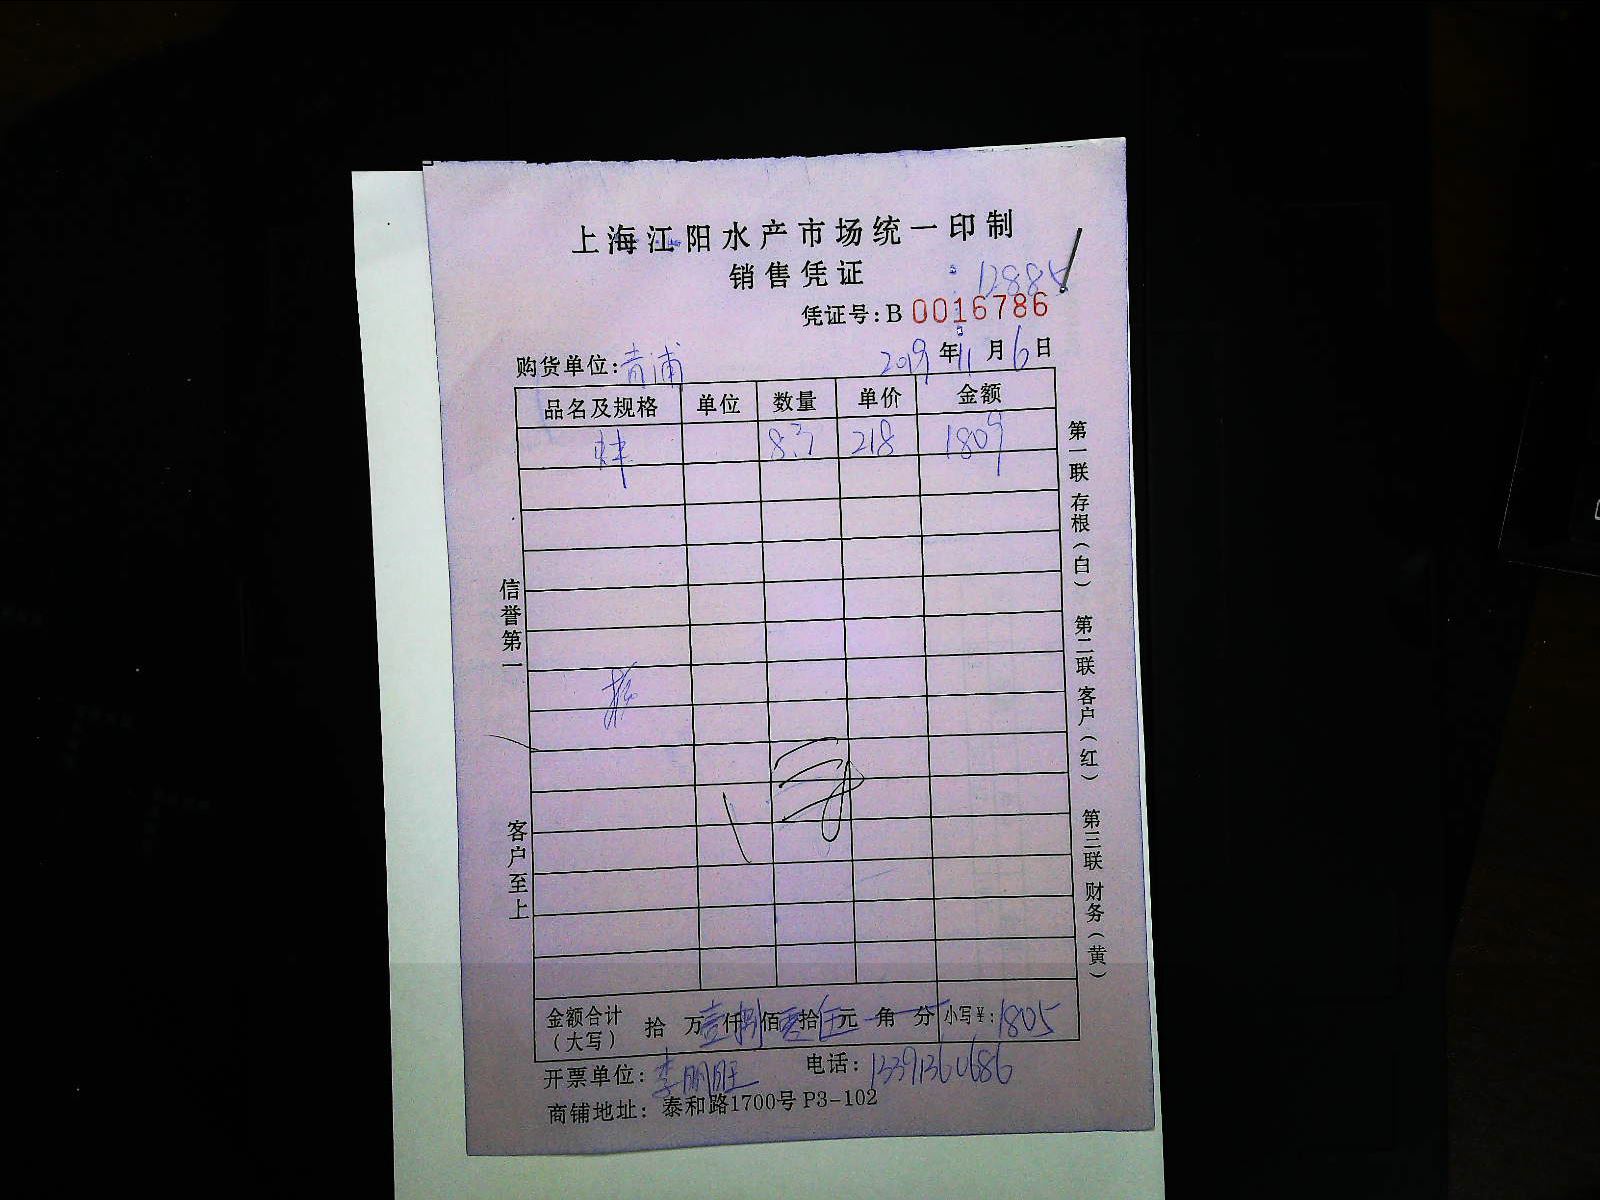 上海江阳水产市场统一印制
销售凭证
12885
凭证号:B 0016786
购货单位:青浦 2019年11月6日
品名及规格 单位 数量 单价 金额
8.3 218 1809
信誉第一
客户至上
第一联 存根(白)
第二联 客户(红)
第三联 财务(黄)
金额合计(大写) 拾 万壹仟捌佰零拾伍元 角 分 小写¥:1805
开票单位:李朋旺 电话:13391360686
商铺地址:泰和路1700号P3-102